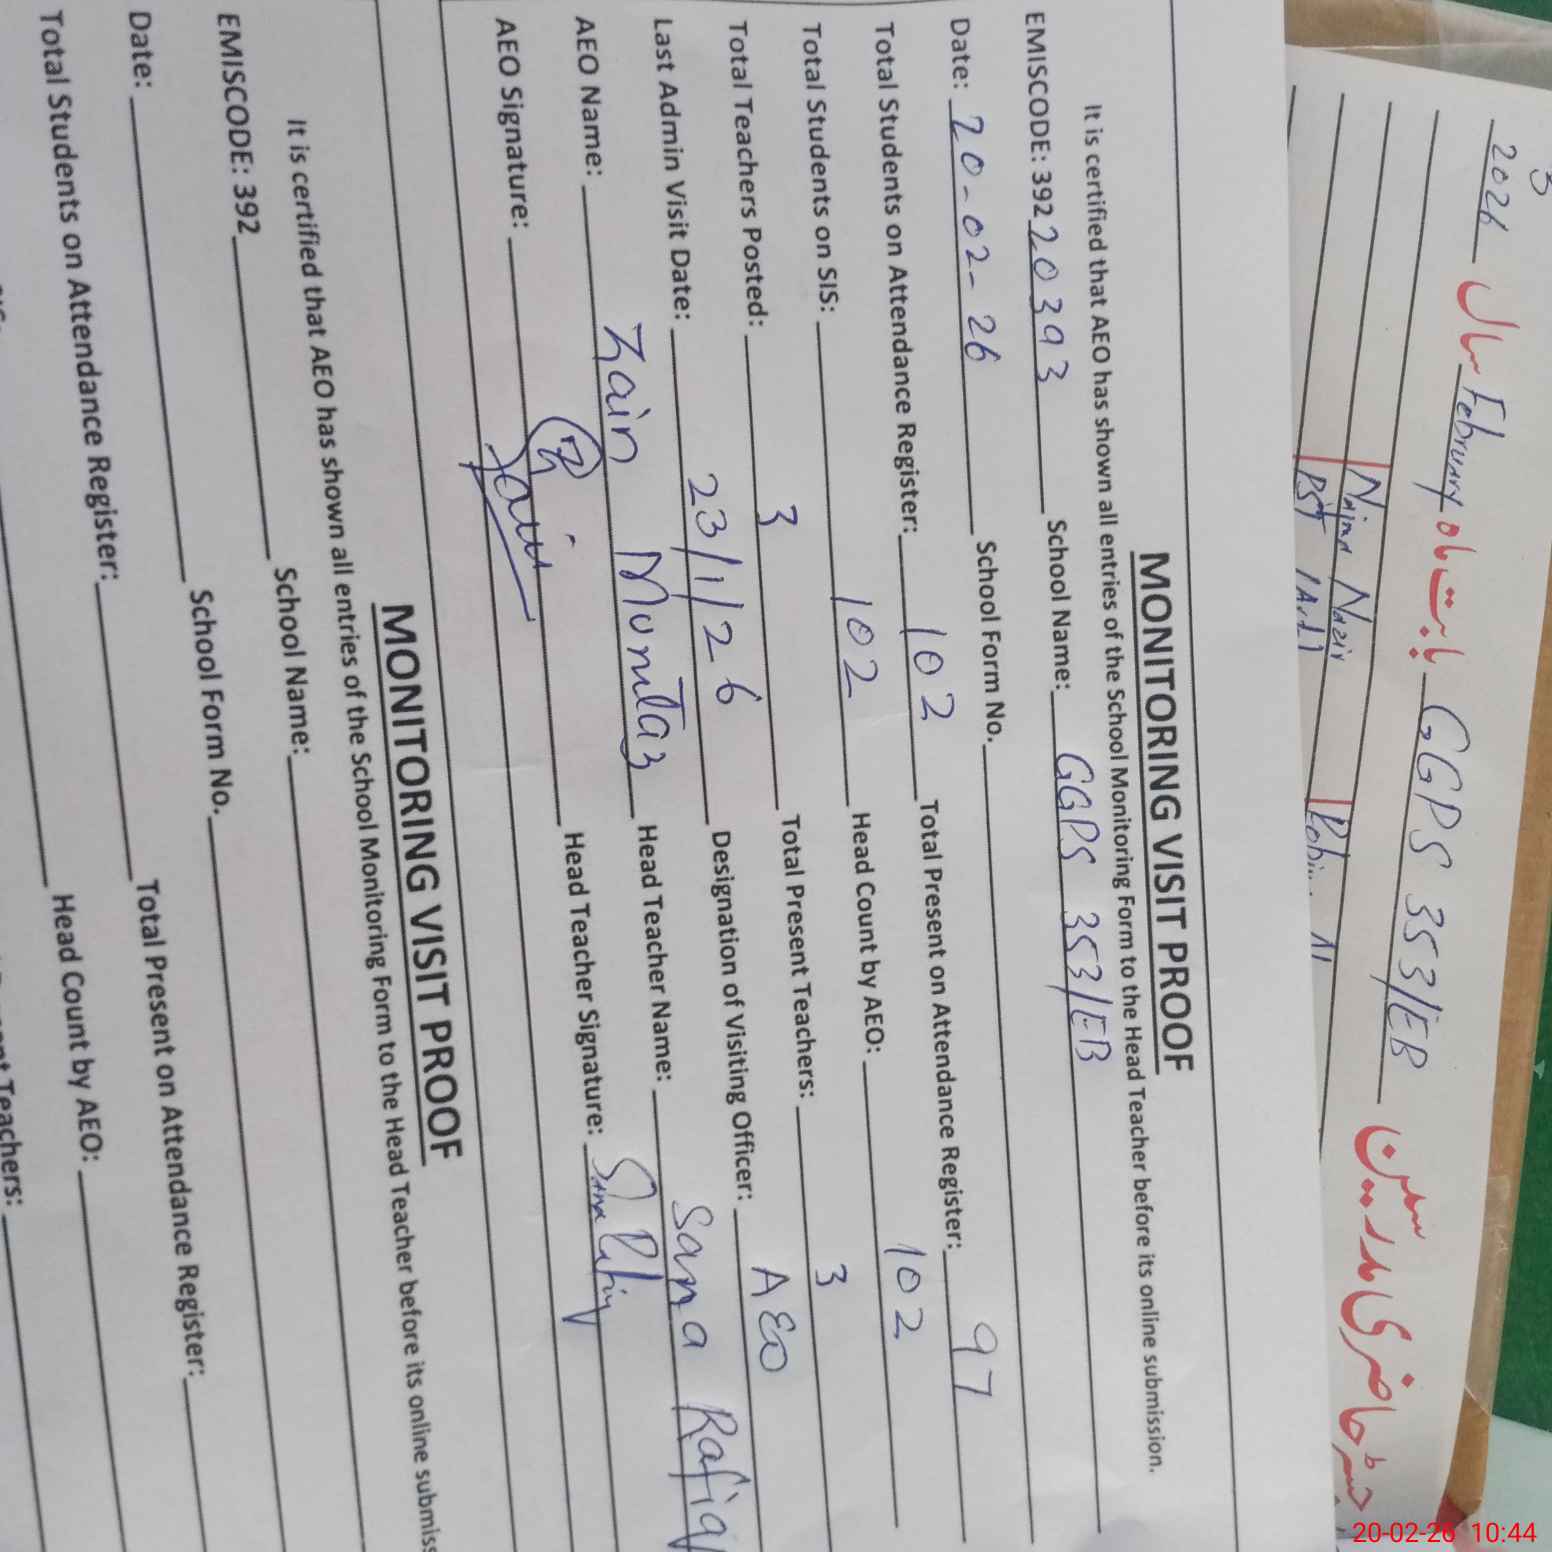 2026 سال Februry بابت ماہ GGPS 353/EB رجسٹر حاضری مدرسین
Najma Nazir
PST
MONITORING VISIT PROOF
It is certified that AEO has shown all entries of the School Monitoring Form to the Head Teacher before its online submission.
EMISCODE: 39220393 School Name: GGPS 353/EB
Date: 20-02-26 School Form No.
Total Students on Attendance Register: 102 Total Present on Attendance Register: 97
Total Students on SIS: 102 Head Count by AEO: 102
Total Teachers Posted: 3 Total Present Teachers: 3
Last Admin Visit Date: 23/1/26 Designation of Visiting Officer: AEO
AEO Name: Zain Mumtaz Head Teacher Name: Sana Rafiq
AEO Signature: Zain Head Teacher Signature: Sana Rafiq
MONITORING VISIT PROOF
It is certified that AEO has shown all entries of the School Monitoring Form to the Head Teacher before its online submiss
EMISCODE: 392 School Name:
Date: School Form No.
Total Students on Attendance Register: Total Present on Attendance Register:
Head Count by AEO:
Teachers:
20-02-26 10:44